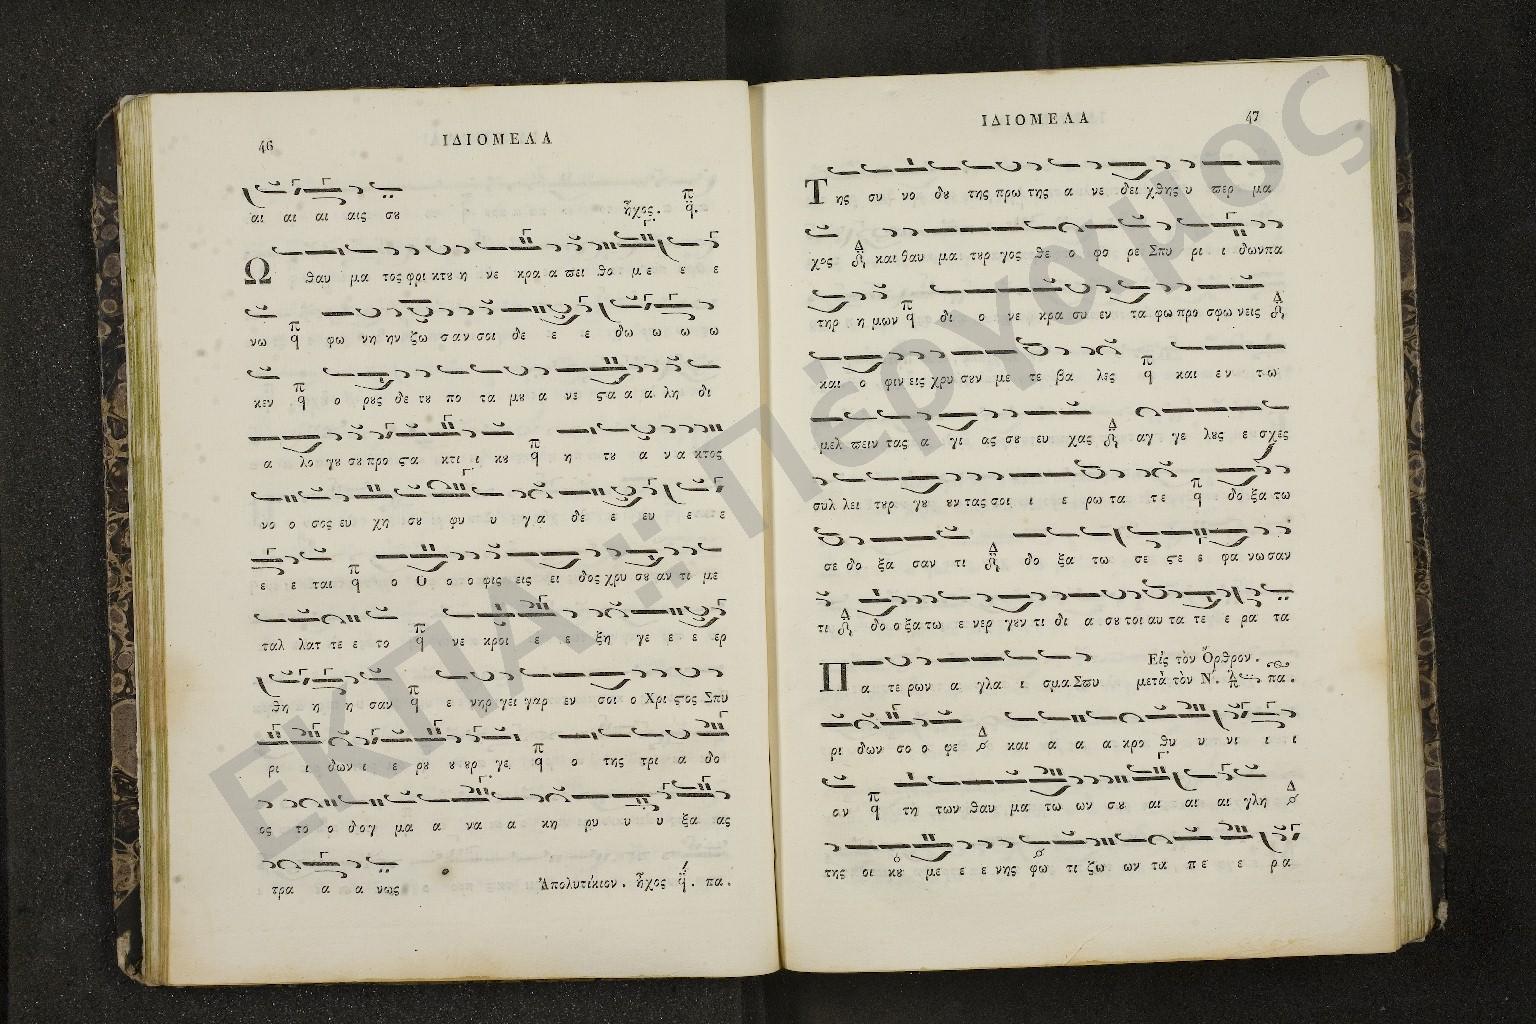 46
ΙΔΙΟΜΕΛΑ
αι αι αι αις σȣ ἦχος. π q̈.
Ω θαυ μα τος φρι κτȣ η νε κρα α πει θο με ε ε
νω π q φω νη ην ζω σαν σοι δε ε ε δω ω ω ω
κεν π q ο ρȣς δε τȣ πο τα μȣ α νε ϛα α α λη δι
α λο γȣ σȣ προ ϛα κτι ι κȣ π q η τȣ α να κτος
νο ο σος ευ χη σȣ φυ υ γα δε ε ευ ε ε
ε ε ται π q ο Ο ο ο φις εις ει δος χρυ σȣ αν τι με
ταλ λατ τε ε το π q νε κροι ε ε ξη γε ε ε ερ
θη η η σαν π q ε νηρ γει γαρ εν σοι ο Χρι ϛος Σπυ
ρι ι δων ι ε ρȣ ȣ ȣρ γε π q ο της τρι α δο
ος το ο δογ μα α να α κη ρυ υ υ ξα ας
τρα α α νως Ἀπολυτίκιον. ἦχος q̈. πα.
ΙΔΙΟΜΕΛΑ
47
Της συ νο δȣ της πρω της α νε δει χθης υ περ μα
χος Δ και θαυ μα τȣρ γος θε ο φο ρε Σπυ ρι ι δων πα
τηρ η μων π q δι ο νε κρα συ εν τα φω προ σφω νεις Δ
και ο φιν εις χρυ σȣν με τε βα λες π q και εν τω
μελ πειν τας α γι ας σȣ ευ χας Δ αγ γε λȣς ε σχες
συλ λει τȣρ γȣ ȣν τας σοι ι ε ρω τα τε π q δο ξα τω
σε δο ξα σαν τι Δ δο ξα τω σε ϛε ε φα νω σαν
τι Δ δο ο ξα τω ε νερ γȣν τι δι α σȣ τοι αυ τα τε ε ρα τα
Εἰς τὸν Ὄρθρον.
Πα τε ρων α γλα ι σμα Σπυ μετὰ τὸν Ν΄. λ π πα.
ρι δων σο ο φε Δ και α α α κρο θυ υ νι ι ι
ον π q τη των θαυ μα τω ων σȣ αι αι αι γλη Δ
της οι κȣ με ε ε νης φω τι ζω ων τα πε ε ρα
ΕΚΠΑ :: Πέργαμος